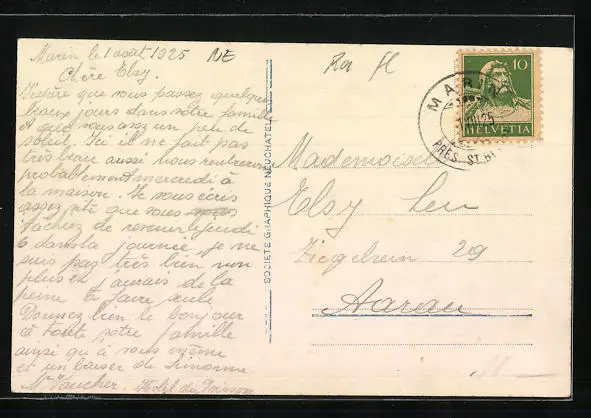 Marin le 1 août 1925 NE
Chère Elsy.
J'espère que vous passez quelques
beaux jours dans votre famille
et que vous avez un peu de
soleil. Ici il ne fait pas
très beau aussi nous rentrerons
probablement mercredi à
la maison. Je vous écris
assez vite que vous
tachiez de revenir jeudi
6 dans la journée je ne
suis pas très bien non
plus et j'aurais de la
peine à faire seule
Donnez bien le bonjour
à toute votre famille
ainsi qu'à vous même
et un baiser de Simonne
Me Vaucher. Hotel du Poisson
SOCIÉTÉ GRAPHIQUE NEUCHATEL
10
HELVETIA
MARIN
PRÈS ST. BL
Mademoiselle
Elsy
Ziegelrain 29
Aarau